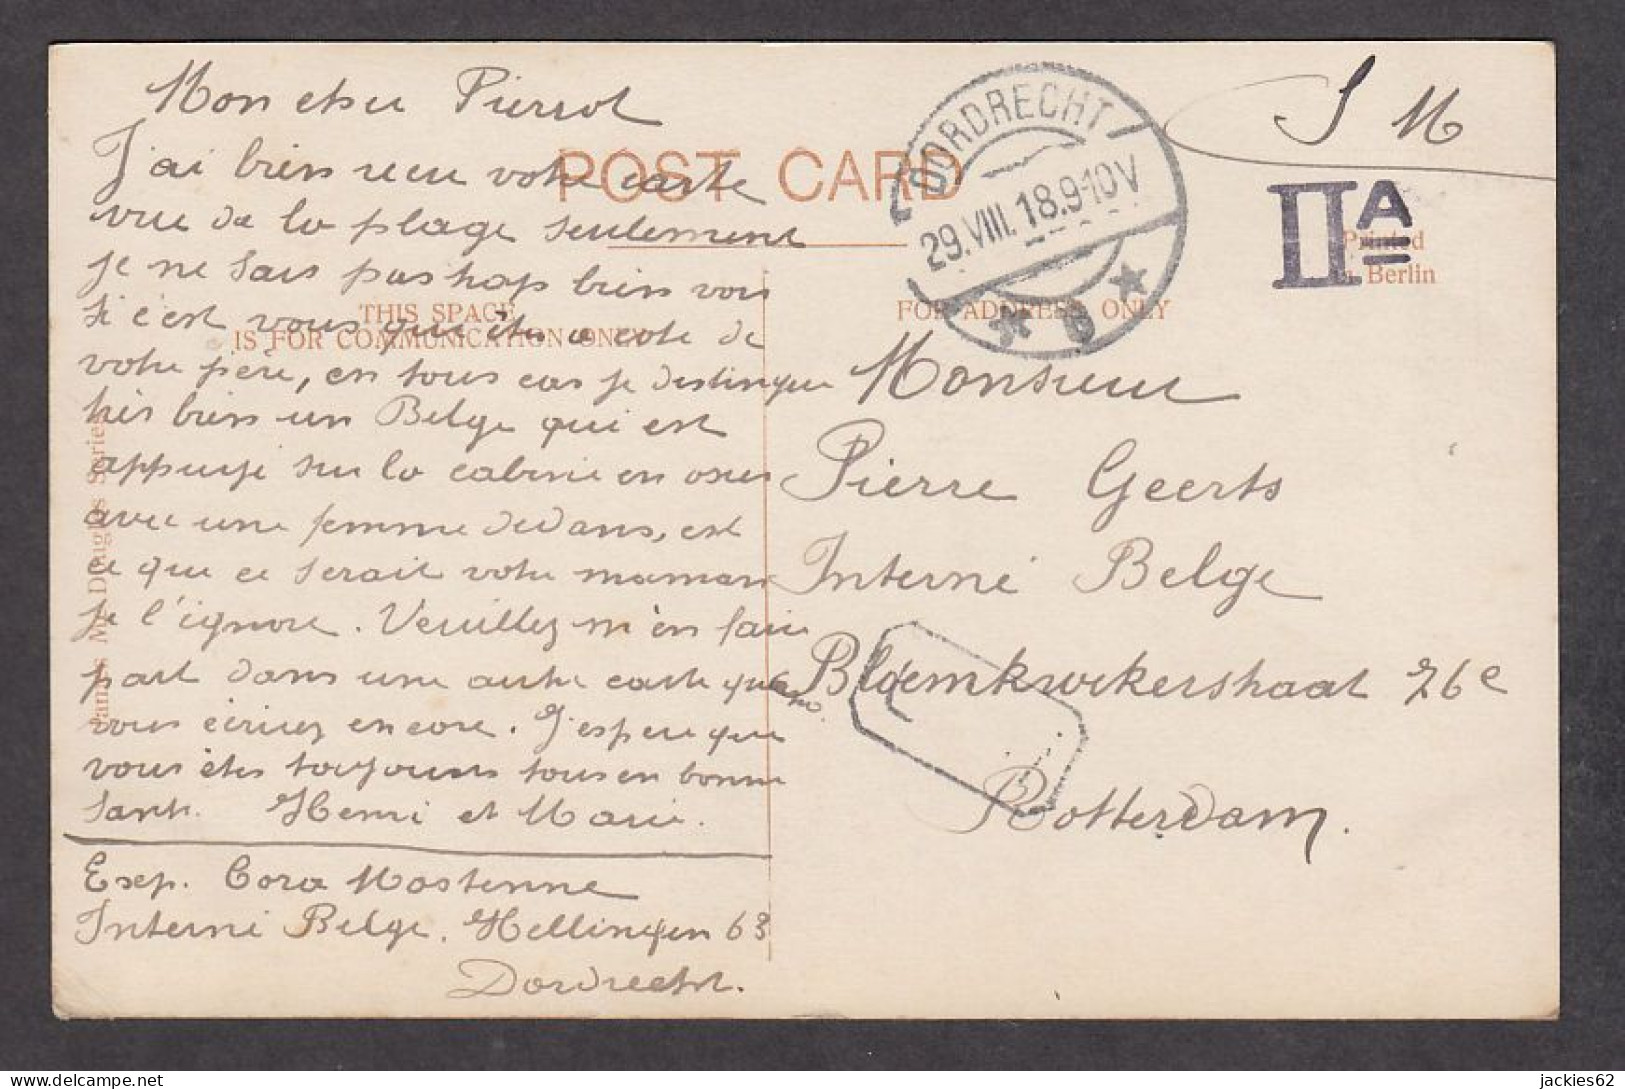 Mon cher Pierrot
J'ai bien reçu votre carte
vue de la plage seulement
je ne sais pas trop bien voir
si c'est vous qui êtes a coté de
votre père, en tous cas je distingue
très bien un Belge qui est
appuyé sur la cabine en osier
avec une femme dedans, est
ce que ce serait votre maman
je l'ignore. Veuillez m'en faire
part dans une autre carte quand
vous écrirez encore. J'espere que
vous êtes toujours tous en bonne
santé. Henri et Marie.
Exp. Cora Mostenne
Interné Belge. Hellingen 63
Dordrecht.
POST CARD
THIS SPACE
IS FOR COMMUNICATION ONLY
FOR ADDRESS ONLY
Printed
in Berlin
Series
DORDRECHT
29.VIII.18.9-10V
S M
IIA
Monsieur
Pierre Geerts
Interné Belge
Bloemkwekerstraat 76e
Rotterdam.
jackies62